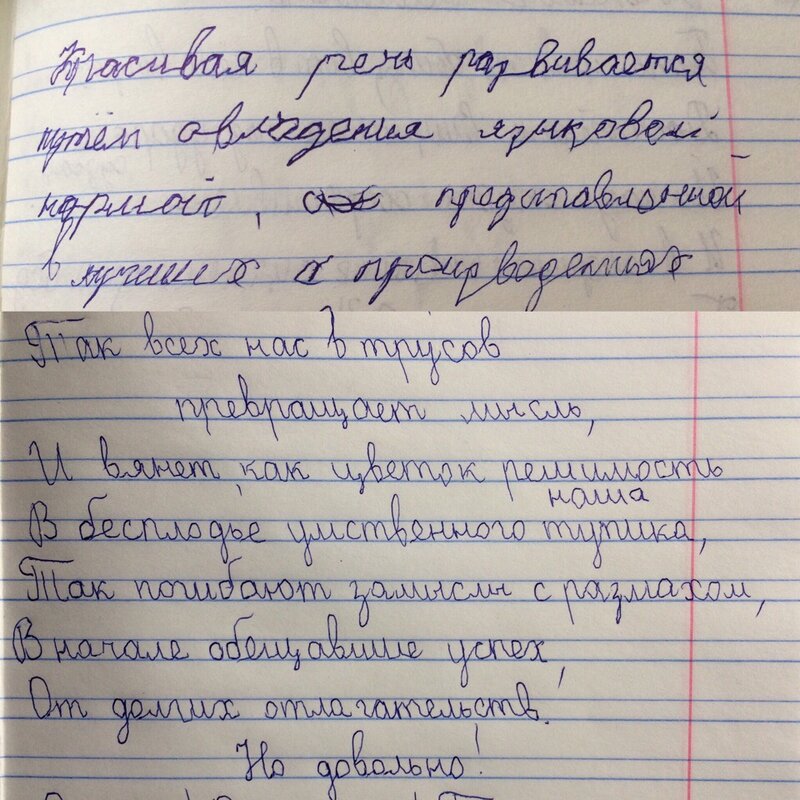 Красивая речь развивается
путём овладения языковой
нормой, представленной
в лучших произведениях
Так всех нас в трусов
превращает мысль,
И вянет, как цветок решимость
наша
В бесплодье умственного тупика,
Так погибают замыслы с размахом,
В начале обещавшие успех,
От долгих отлагательств.
Но довольно!